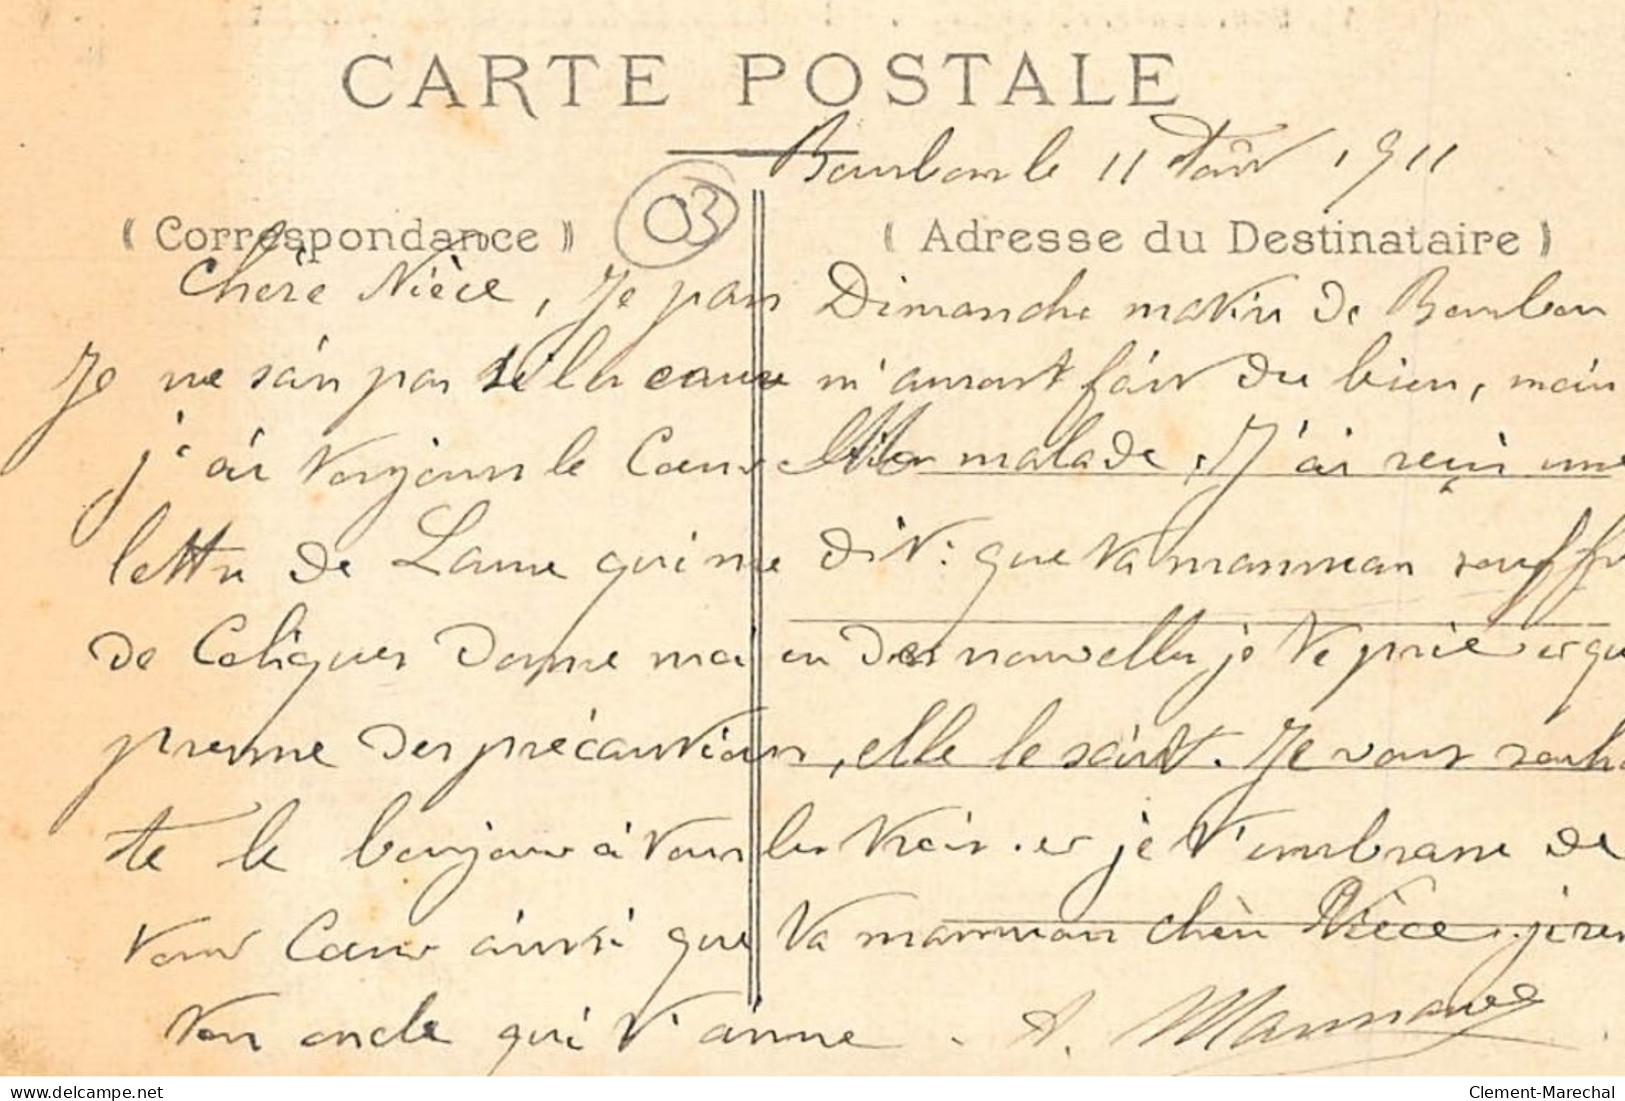 CARTE POSTALE
Bourbon le 11 Août 1911
03
( Correspondance )
( Adresse du Destinataire )
Chère Nièce, Je pars Dimanche matin de Bourbon
Je ne sais pas si la cause m'aurait fait du bien, mais
j'ai toujours le Cœur malade. J'ai reçu une
lettre de Laure qui me dit: que ta manman souffre
de Coliques donne moi en des nouvelles je te prie et qu
prenne des précautions, elle le sait. Je vous souha
te le bonjour à tous les trois. et je t'embrasse de
tout Cœur ainsi que ta manman chère Nièce. je
ton oncle qui t'aime. A.
Clement-Marechal